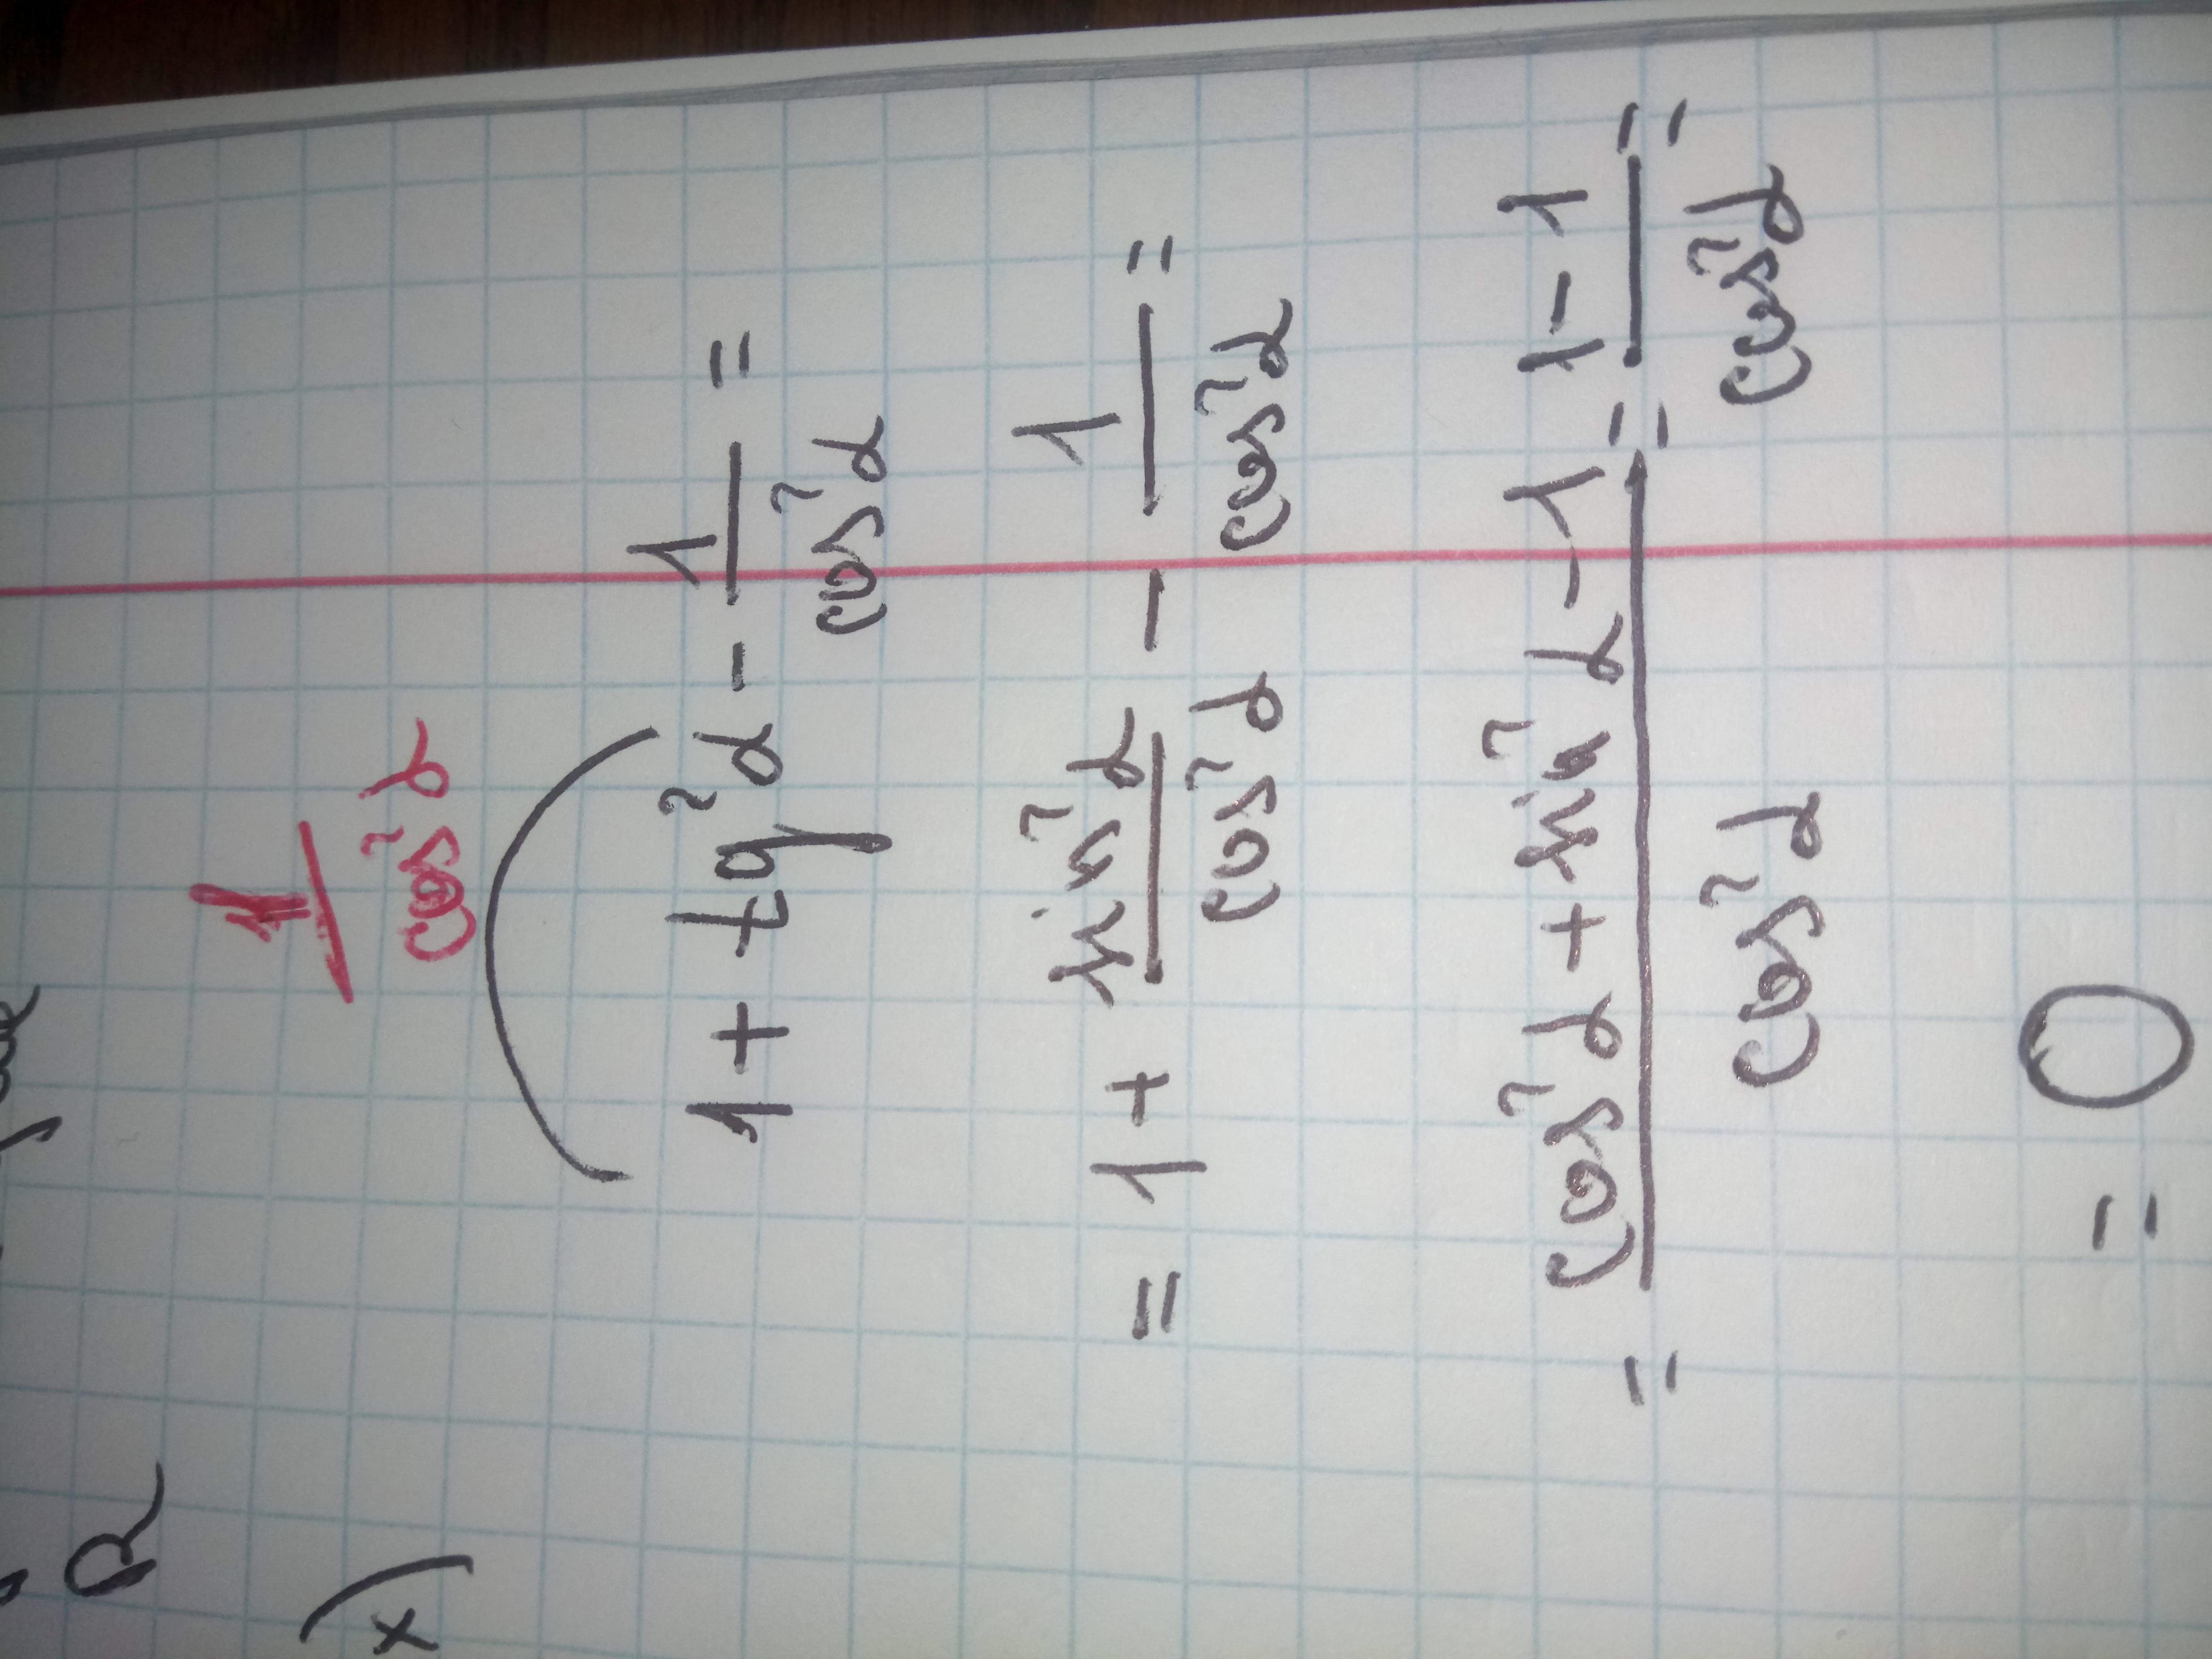 1
cos²α
1 + tg²α - 1/cos²α =
= 1 + sin²α/cos²α - 1/cos²α =
= (cos²α + sin²α - 1)/cos²α = (1-1)/cos²α =
= 0